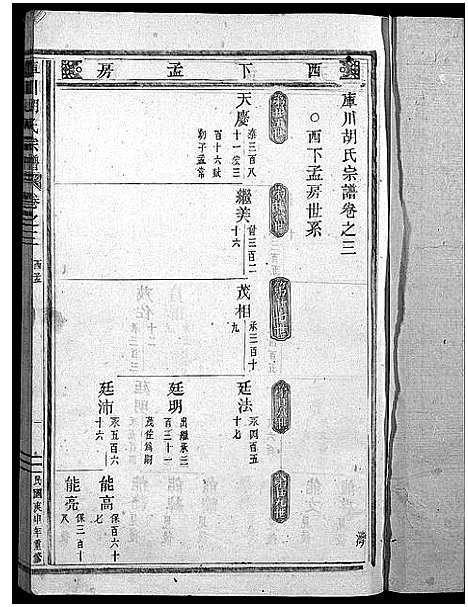 西下孟房
庫川胡氏宗譜卷之三
○西下孟房世系
天慶
泰三百八
十一娶三
百十六賦
勤子孟常
繼美
曾三百二
十六
茂相
承三百十
九
廷法
永四百五
十七
廷明
出繼承三
百三十一
茂佐爲嗣
廷沛
永五百六
十六
能高
保百六十
七
能亮
保三百十
八
川胡氏宗譜
卷之三
西孟
一
民國庚申年重修